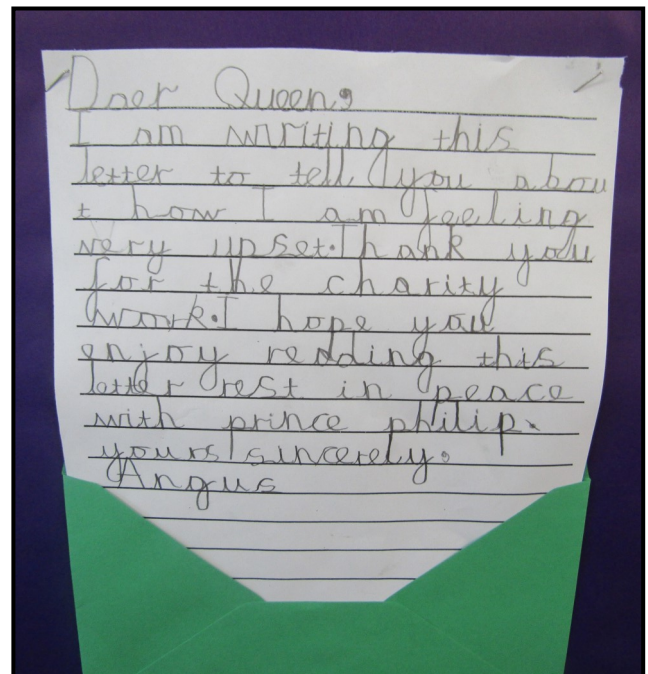 Daer Queen,
I am writing this
letter to tell you abou
t how I am feeling
very upset.Thank you
for the charity
work.I hope you
enjoy reading this
letter rest in peace
with prince philip.
yours sincerely.
Angus